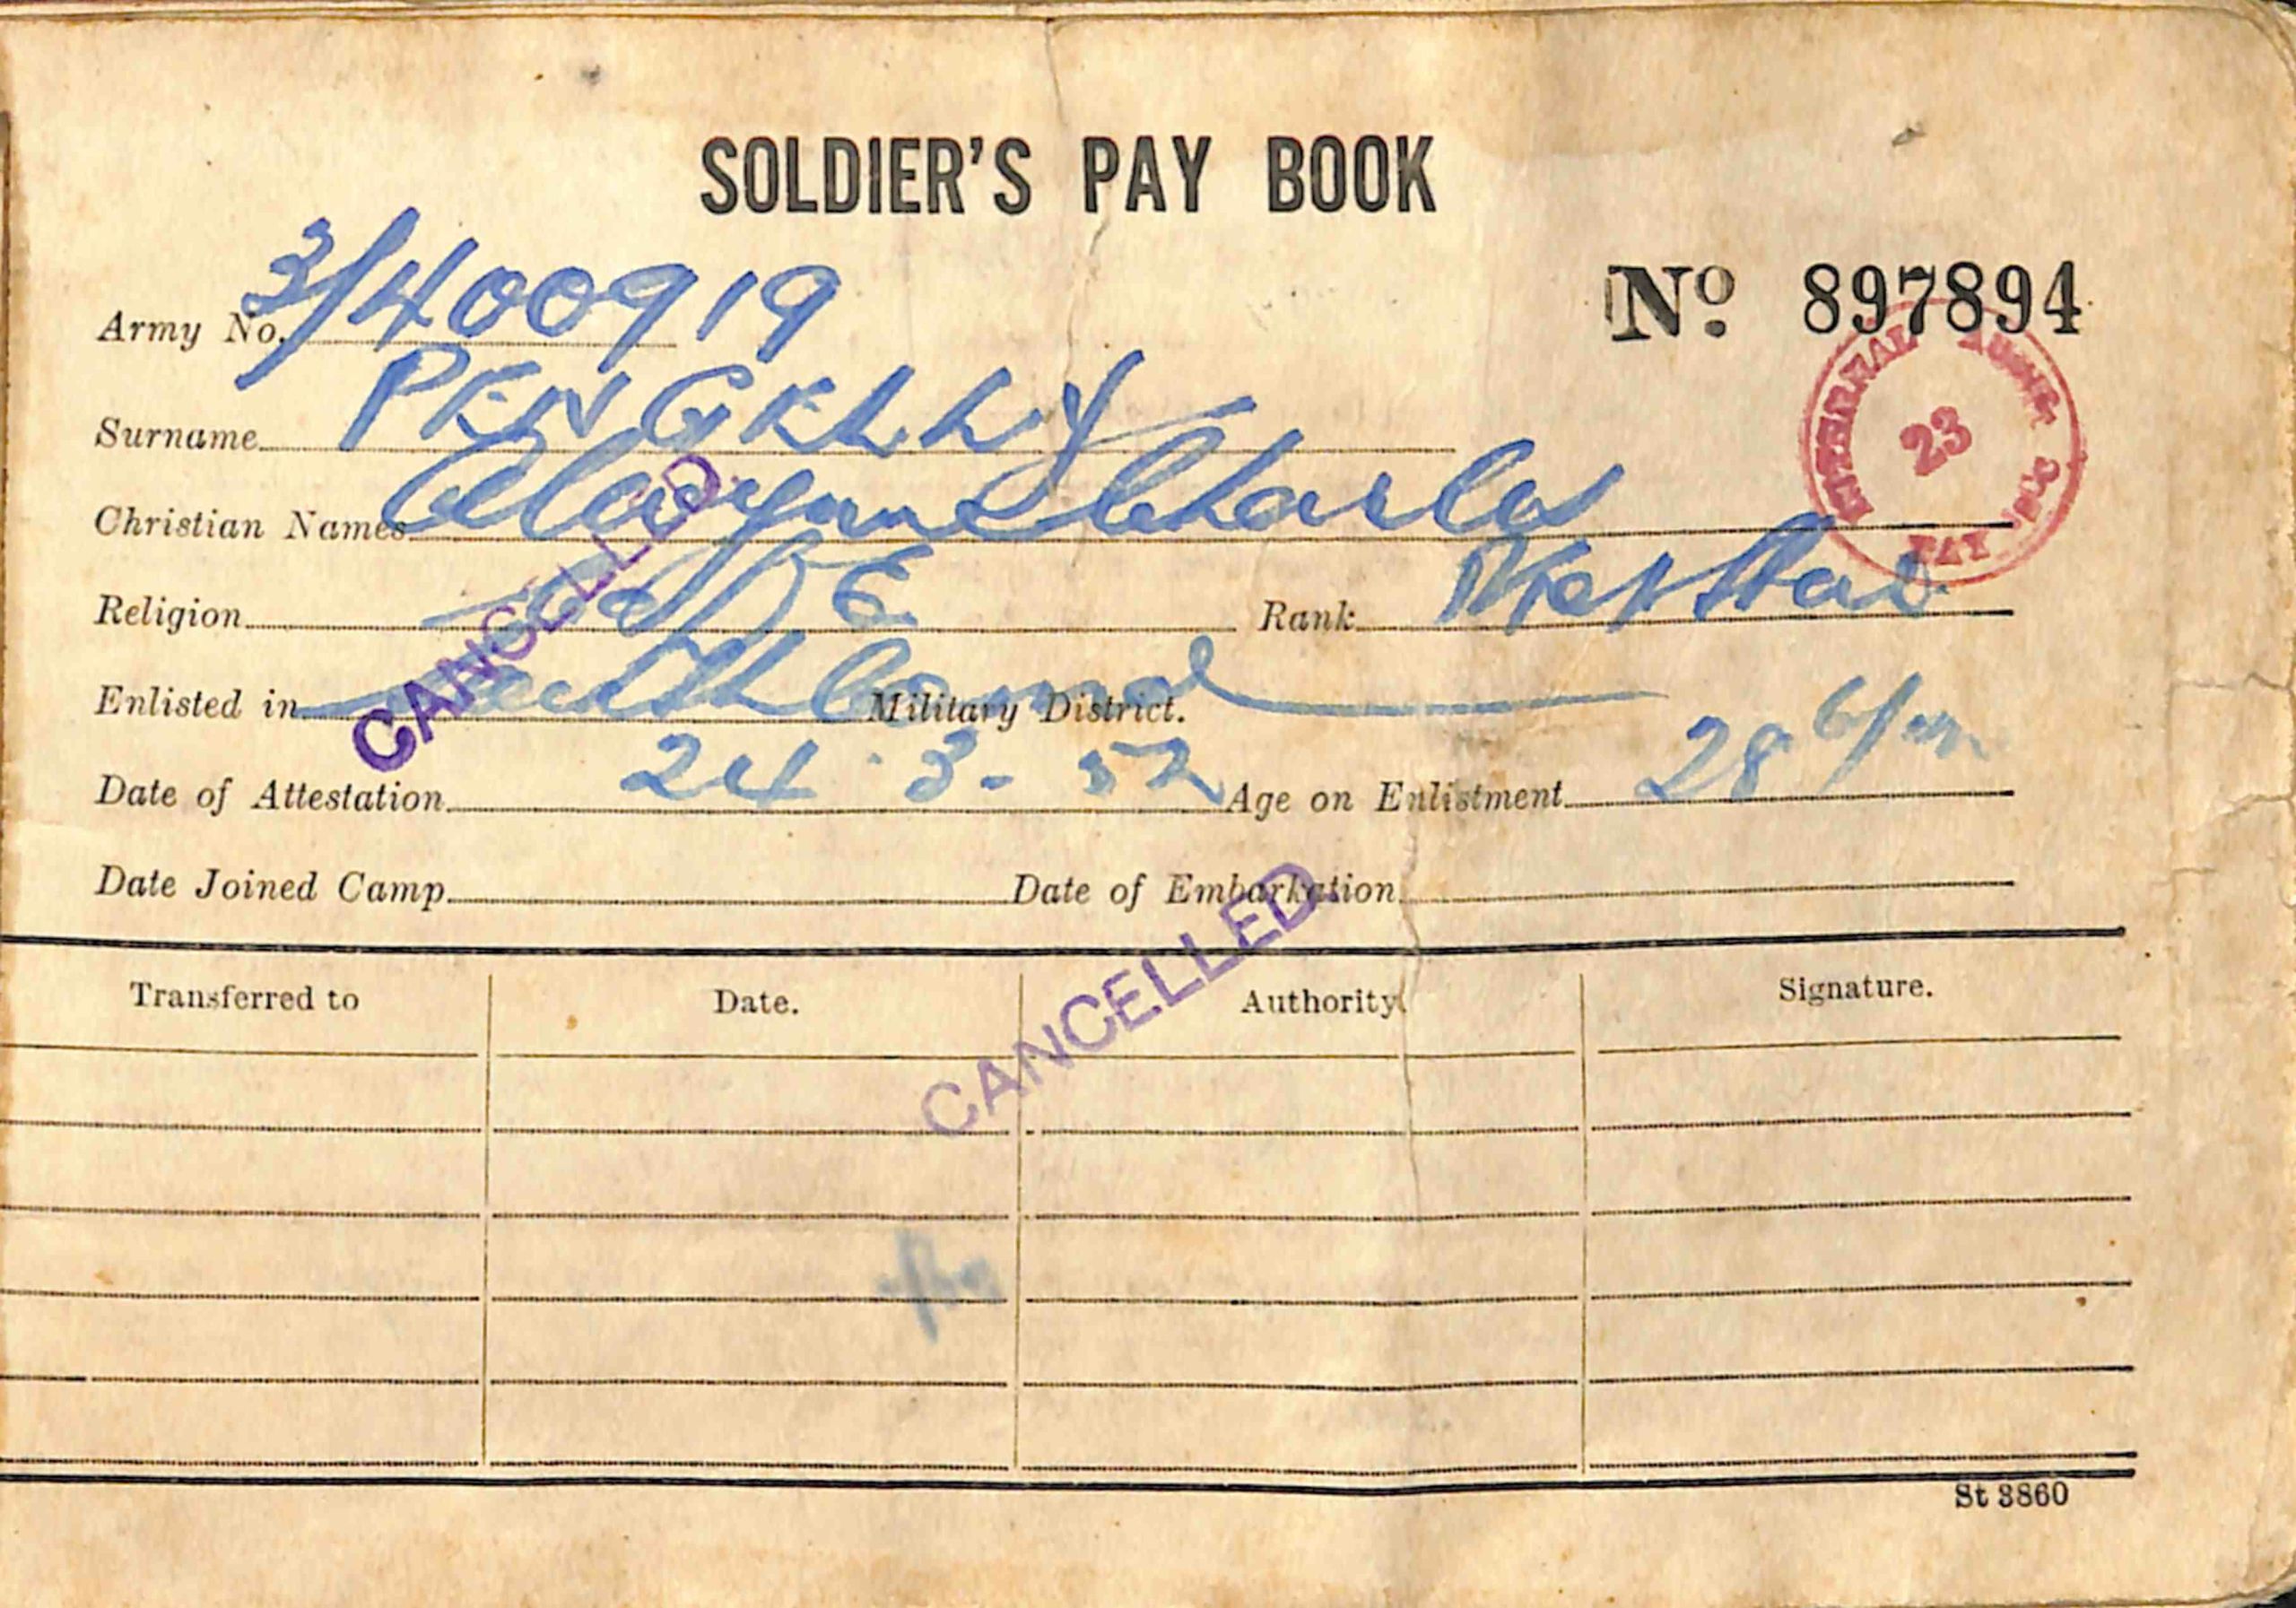 SOLDIER'S PAY BOOK
Nº 897894
Army No. 3/400919
Surname PENGELLY
Christian Names Charles
Religion C of E Rank
Enlisted in Southern Comd Military District.
Date of Attestation 24.3-52 Age on Enlistment 28 6/m
Date Joined Camp Date of Embarkation
CANCELLED
CANCELLED
INTERNAL AUDIT
23
Transferred to Date. Authority. Signature.
St 3860